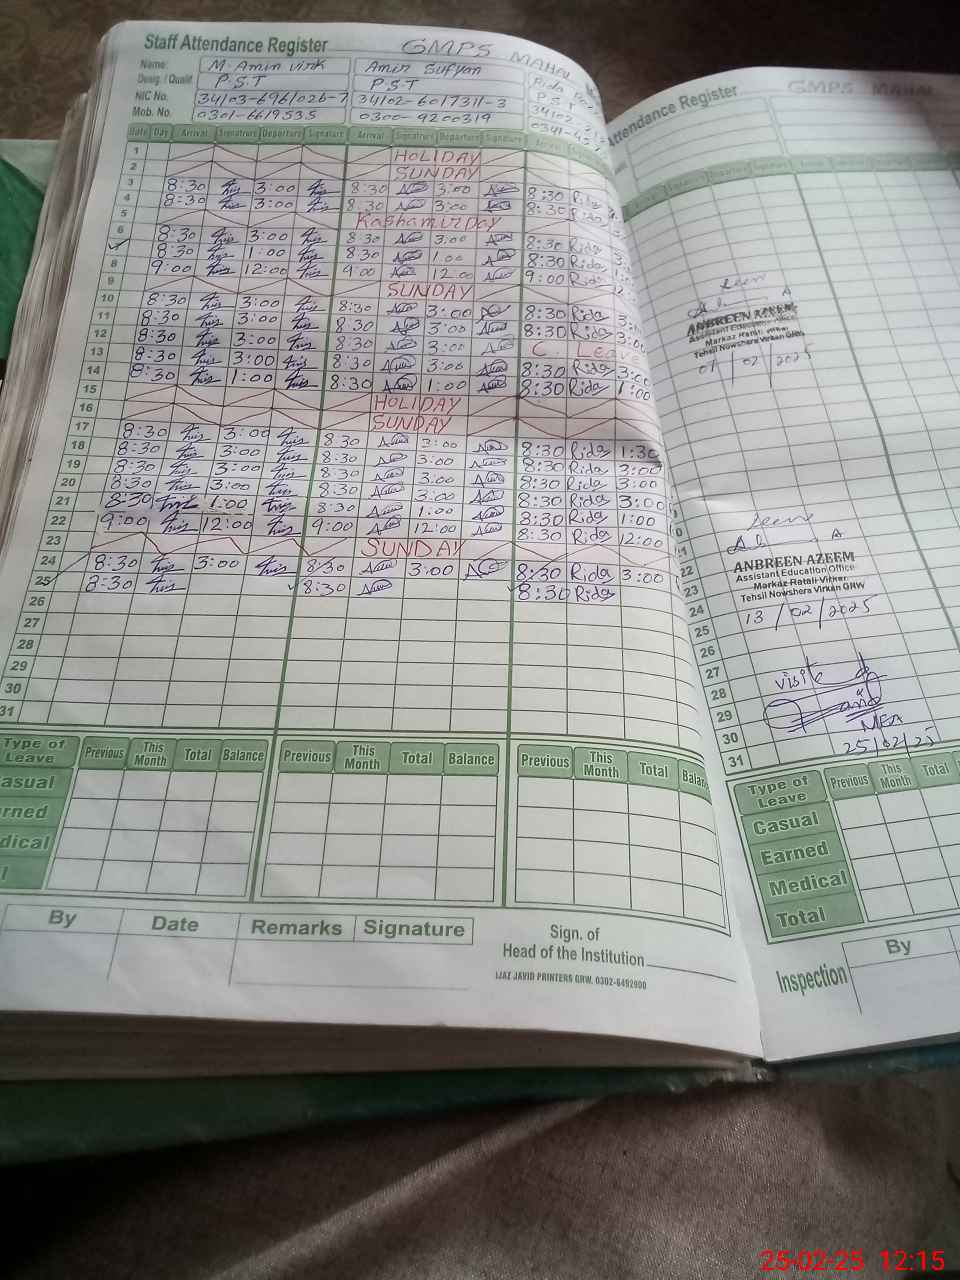 Staff Attendance Register GMPS MAHAL
Name: M. Amin Virk Amir Sufyan Rida
Desig. / Qualif. P.S.T P.S.T P.S.T
NIC No. 34103-6961026-7 34102-6017311-3 34102
Mob. No. 0301-6619535 0300-9200319 0341
Date Day Arrival Signature Departure Signature Arrival Signature Departure Signature
1 HOLIDAY
2 SUNDAY
3 8:30 3:00 8:30 3:00 8:30 Rida
4 8:30 3:00 8:30 3:00 8:30 Rida
5 Kashamir Day
6 8:30 3:00 8:30 3:00 8:30 Rida
8:30 1:00 8:30 1:00 8:30 Rida
8 9:00 12:00 9:00 12:00 9:00 Rida
9 SUNDAY
10 8:30 3:00 8:30 3:00 8:30 Rida 3:00
11 8:30 3:00 8:30 3:00 8:30 Rida 3:00
12 8:30 3:00 8:30 3:00 C. Leave
13 8:30 3:00 8:30 3:00 8:30 Rida 3:00
14 8:30 1:00 8:30 1:00 8:30 Rida 1:00
15 HOLIDAY
16 SUNDAY
17 8:30 3:00 8:30 3:00 8:30 Rida 1:30
18 8:30 3:00 8:30 3:00 8:30 Rida 3:00
19 8:30 3:00 8:30 3:00 8:30 Rida 3:00
20 8:30 3:00 8:30 3:00 8:30 Rida 3:00
21 8:30 1:00 8:30 1:00 8:30 Rida 1:00
22 9:00 12:00 9:00 12:00 8:30 Rida 12:00
23 SUNDAY
24 8:30 3:00 8:30 3:00 8:30 Rida 3:00
25 8:30 8:30 8:30 Rida
26
27
28
29
30
31
Type of Leave Previous This Month Total Balance Previous This Month Total Balance Previous This Month Total Balance
Casual
Earned
Medical
By Date Remarks Signature
Sign. of
Head of the Institution
IJAZ JAVID PRINTERS GRW. 0302-6492900
Attendance Register GMPS MAHAL
Seen
ANBREEN AZEEM
Assistant Education Officer
Markaz Ratali Virkan
Tehsil Nowshera Virkan GRW
01/02/2025
Seen
ANBREEN AZEEM
Assistant Education Office
Markaz Ratali Virkan
Tehsil Nowshera Virkan GRW
13/02/2025
21
22
23
24
25
26
27
28
29
30
31
visited
MEA
25/02/25
Type of Leave Previous This Month Total
Casual
Earned
Medical
Total
Inspection By
25-02-25 12:15